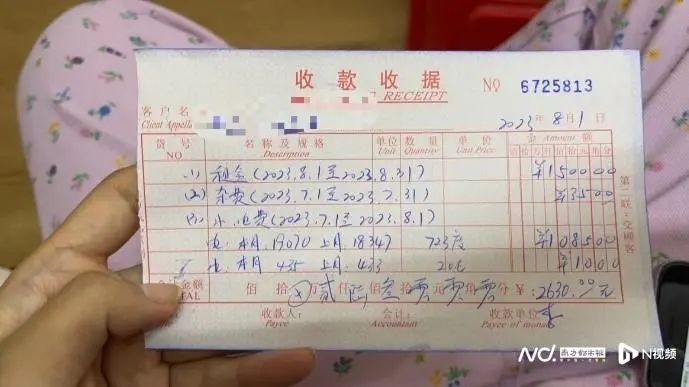 收款收据
RECEIPT
NO 6725813
客户名
Client Appella
2023年8月1日
货号 名称及规格 单位 数量 单价 金 Amount 额
NO Description Unit Quantity Unit Price 佰拾万仟佰拾元角分
(1) 租金(2023.8.1至2023.8.31) ¥150000
(2) 杂费(2023.7.1至2023.7.31) ¥3500
水电费(2023.7.1至2023.8.1)
电:本月19070 上月18347 723度 ¥108500
水:本月435 上月433 2吨 ¥1000
金额 佰 拾 万 仟 佰 拾 元 角 分 ¥:2630.00元
TOTAL 贰 陆 叁 零 零 零
收款人: 会计: 收款单位
Payee Accountant Payee of mona
第二联:交顾客
ND. 南方都市报 N视频